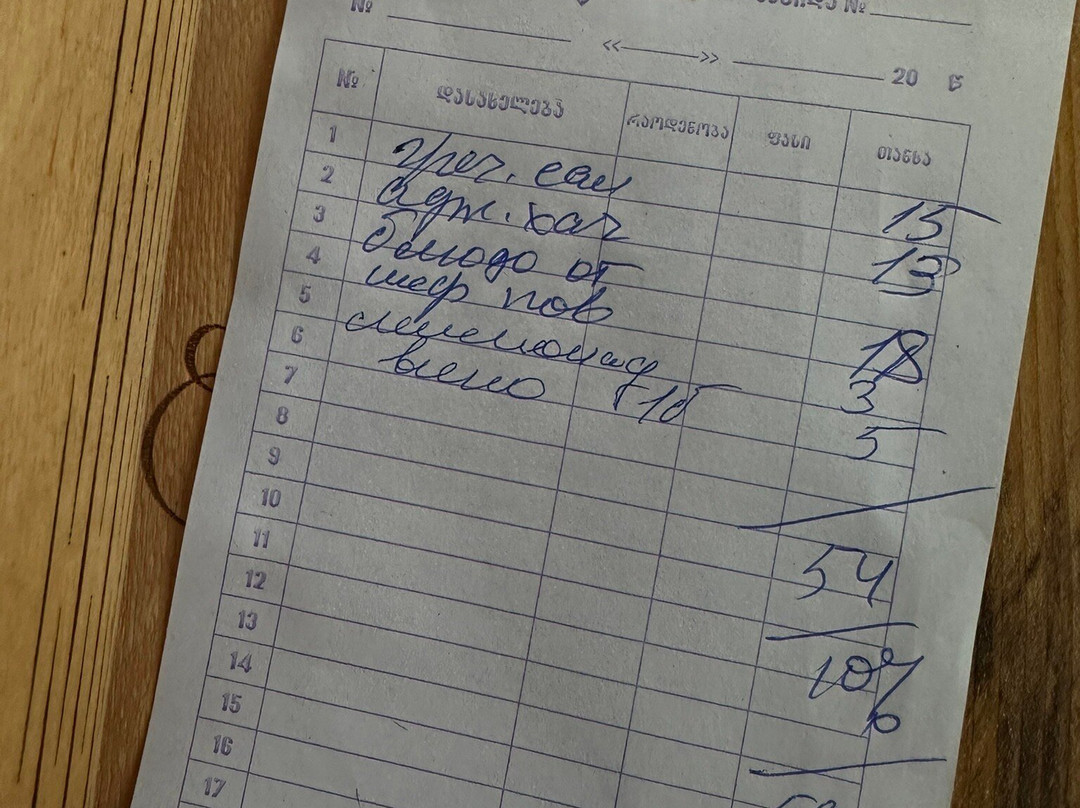 № № 
« » 20 წ
№ დასახელება რაოდენობა ფასი თანხა
1 греч. сал 15
2 адж. хач 13
3 блюдо от
4 шеф пов 18
5 лимонад 3
6 вино 1б 5
7
8
9
10
11 54
12
13 10%
14
15
16
17